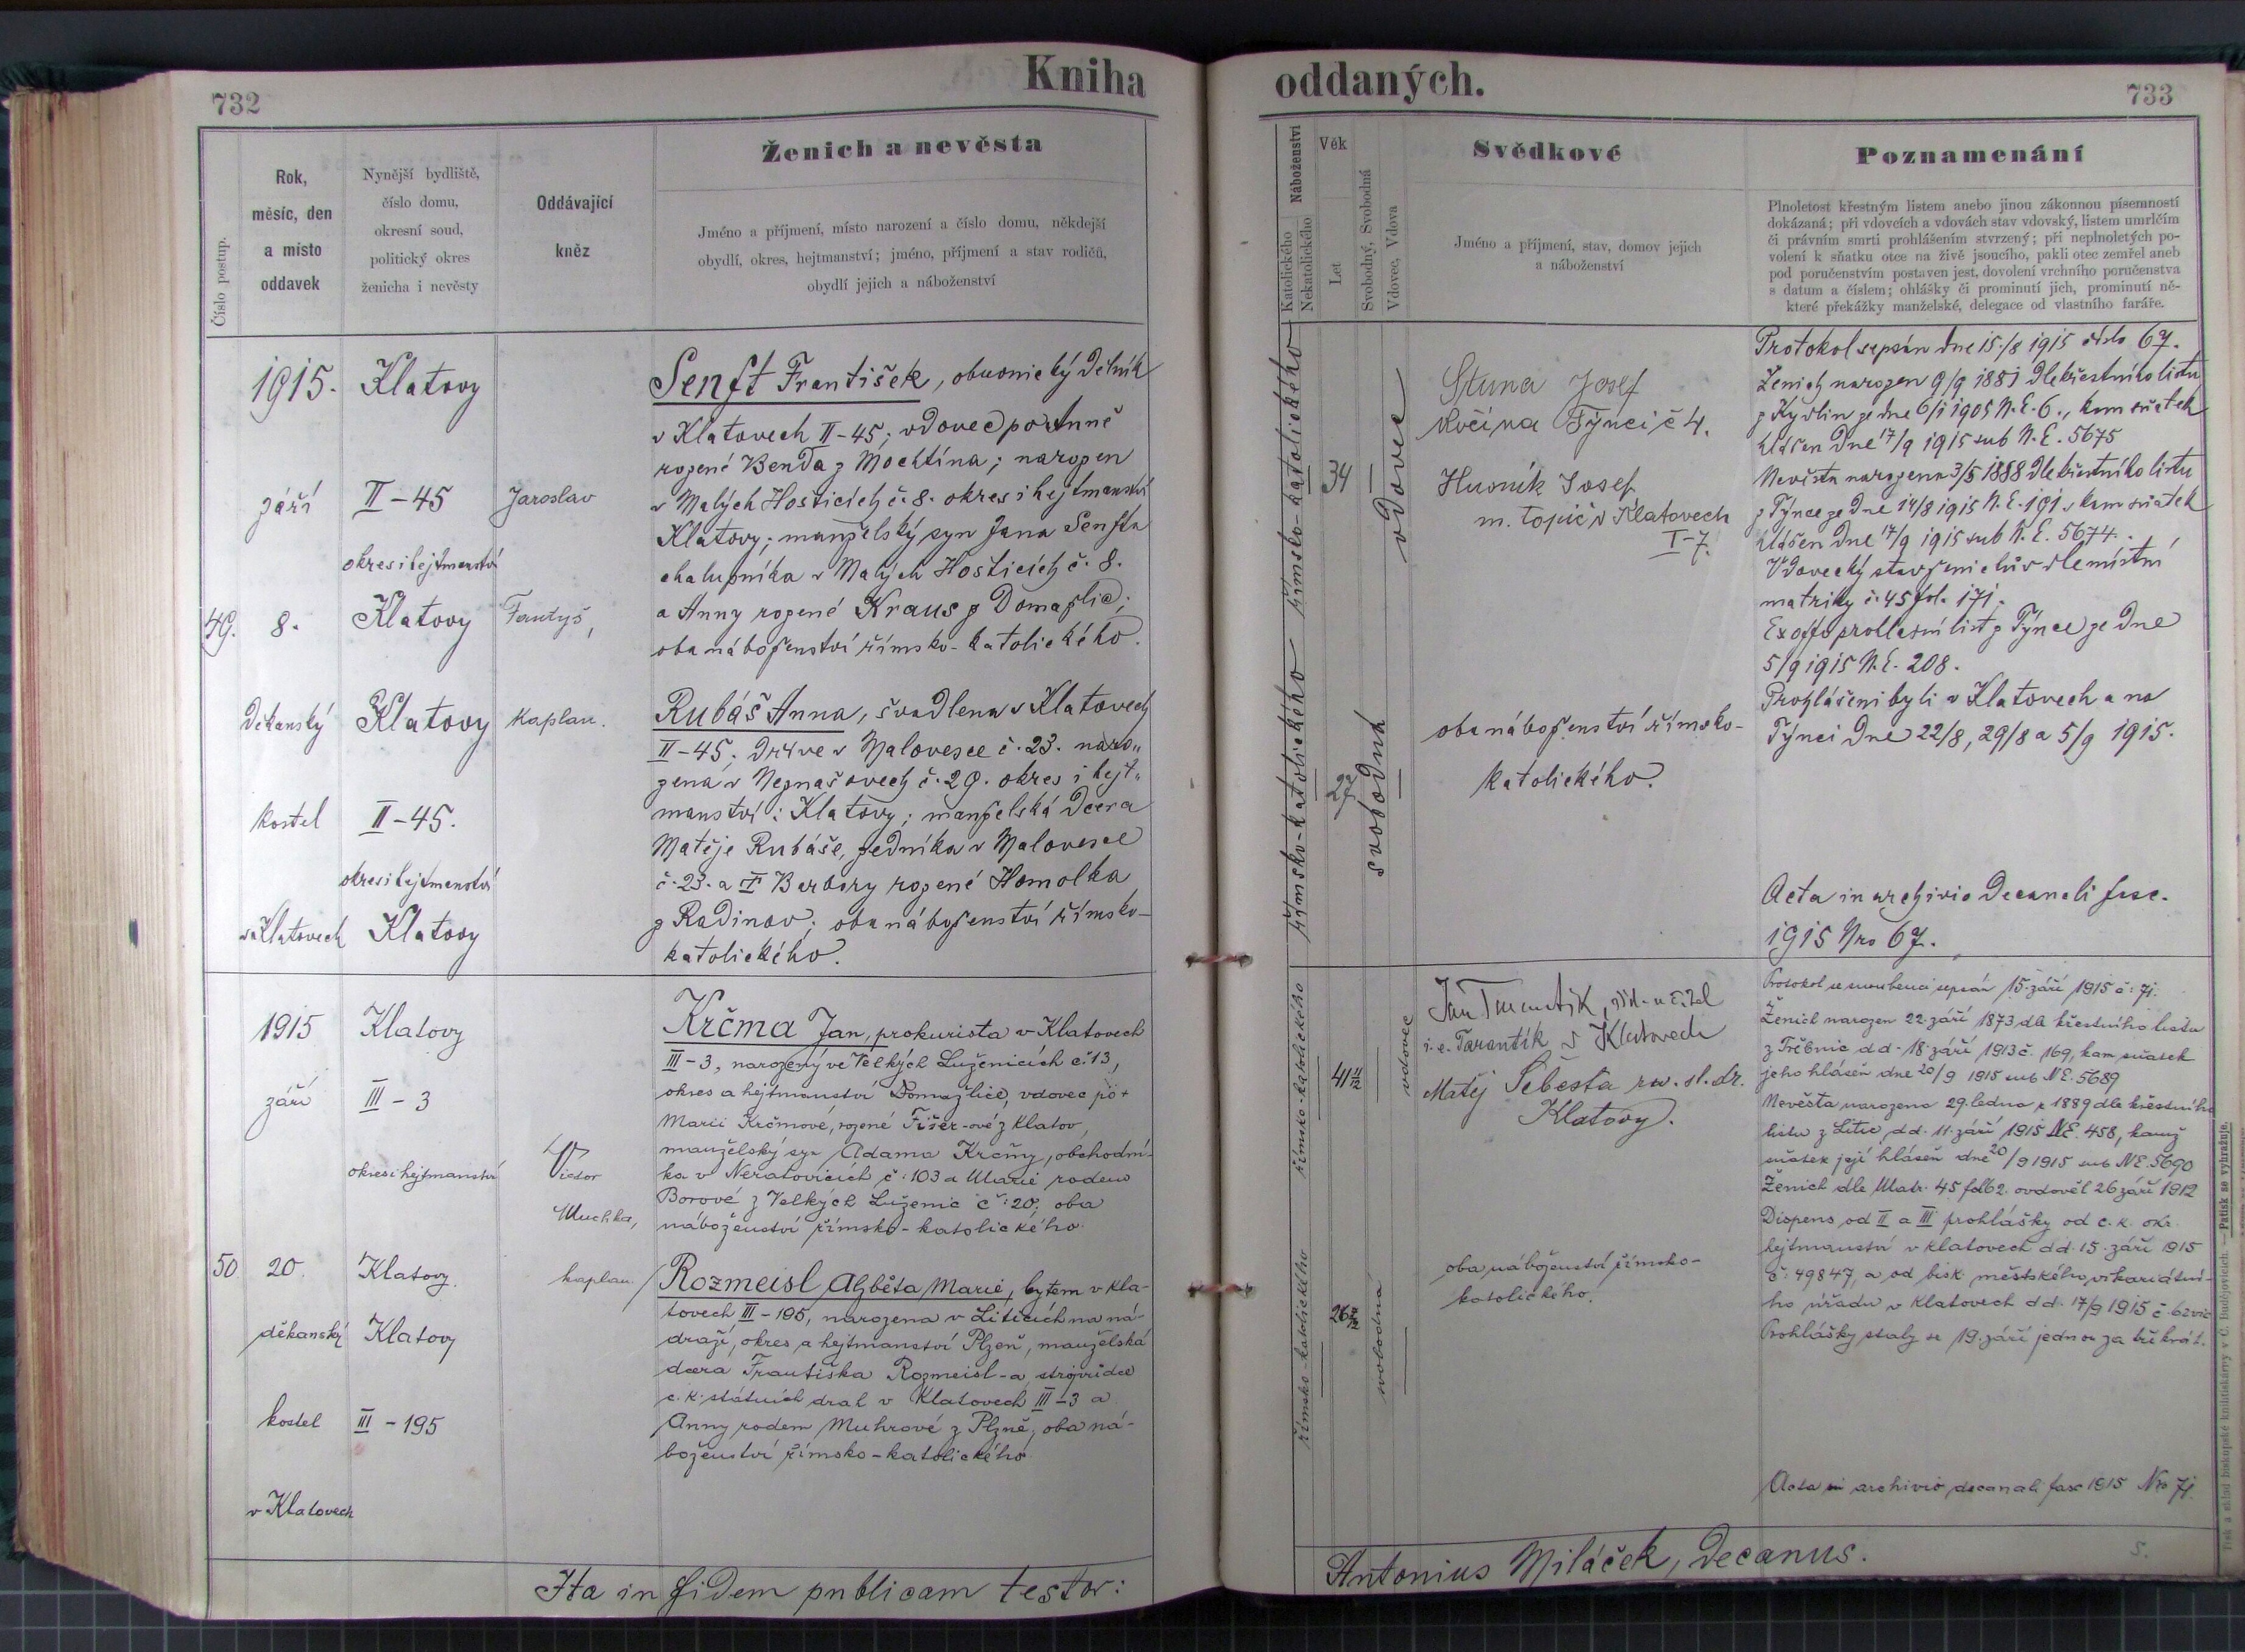 Kniha
oddaných.
732
733
Číslo postup.
Rok,
měsíc, den
a místo
oddavek
Nynější bydliště,
číslo domu,
okresní soud,
politický okres
ženicha i nevěsty
Oddávající
kněz
Ženich a nevěsta
Jméno a příjmení, místo narození a číslo domu, někdejší
obydlí, okres, hejtmanství; jméno, příjmení a stav rodičů,
obydlí jejich a náboženství
Náboženství
Katolického
Nekatolického
Věk
Let
Svobodný, Svobodná
Vdovec, Vdova
Svědkové
Jméno a příjmení, stav, domov jejich
a náboženství
Poznamenání
Plnoletost křestným listem anebo jinou zákonnou písemností
dokázaná; při vdovcích a vdovách stav vdovský, listem umrlčím
či právním smrti prohlášením stvrzený; při neplnoletých po-
volení k sňatku otce na živě jsoucího, pakli otec zemřel aneb
pod poručenstvím postaven jest, dovolení vrchního poručenstva
s datum a číslem; ohlášky či prominutí jich, prominutí ně-
které překážky manželské, delegace od vlastního faráře.
49.
1915.
září
8.
Děkanský
kostel
v Klatovech
Klatovy
II-45
okres i hejtmanství
Klatovy
Klatovy
II-45.
okres i hejtmanství
Klatovy
Jaroslav
Fantyš,
kaplan.
Senft František, obuvnický dělník
v Klatovech II-45; vdovec po Anně
rozené Benda z Mochtína; narozen
v Malých Hošticích č. 8. okres i hejtmanství
Klatovy; manželský syn Jana Senfta
chalupníka v Malých Hošticích č. 8.
a Anny rozené Kraus z Domažlic;
oba náboženství římsko-katolického.
Rubáš Anna, švadlena v Klatovech
II-45; dříve v Malovesce č. 23. naro„
zená v Neznašovech č. 29. okres i hejt„
manství: Klatovy; manželská dcera
Matěje Rubáše, zedníka v Malovesce
č. 23. a † Barbory rozené Homolka
z Radinov; oba náboženství římsko-
katolického.
římsko-katolického
34
vdovec
římsko-katolického
27
svobodná
Josef
Týnci č 4.
Husník Josef
m. topič v Klatovech
I-7.
oba náboženství římsko-
katolického.
Protokol sepsán dne 15./8 1915 číslo 67.
Ženich narozen 9/9 1881 dle křestního listu
z Kydlin ze dne 6/1 1905 N.E. 6., kam sňatek
hlášen dne 17/9 1915 sub N.E. 5675
Nevěsta narozena 3/5 1888 dle křestního listu
z Týnce ze dne 14/8 1915 N.E. 191, kam sňatek
hlášen dne 17/9 1915 sub N.E. 5674.
Vdovecký stav ženichův dle místní
matriky č. 45 fol. 171.
Ex offo prohlašní list z Týnce ze dne
5/9 1915 N.E. 208.
Prohlášeni byli v Klatovech a na
Týnci dne 22/8, 29/8 a 5/9 1915.
Acta in archivio Decanali fasc.
1915 Nro 67.
50
1915
září
20.
děkanský
kostel
v Klatovech
Klatovy
III-3
okres i hejtmanství
Klatovy.
Klatovy
III-195
Victor
Muchka,
kaplan.
Krčma Jan, prokurista v Klatovech
III-3, narozený ve Velkých Luženicích č. 13,
okres a hejtmanství Domažlice, vdovec po †
Marii Krčmové, rozené Fišer-ové z Klatov,
manželský syn Adama Krčmy, obchodní-
ka v Neratovicích č: 103 a Marie rodem
Borové z Velkých Luženic č: 20; oba
náboženství římsko-katolického.
Rozmeisl Alžběta Marie, bytem v Kla-
tovech III-195, narozena v Liticích na ná-
draží, okres a hejtmanství Plzeň, manželská
dcera Františka Rozmeisl-a, strojvůdce
c. k. státních drah v Klatovech III-3 a
Anny rodem Muhrové z Plzně, oba ná-
boženství římsko-katolického
římsko-katolického
41
vdovec
římsko-katolického
26
svobodná
Jan Tarantík, říd. učitel
i. e. Tarantík v Klatovech
Matěj Šebesta rev. st. dr.
Klatovy.
oba náboženství římsko-
katolického.
Protokol se snoubenci sepsán 15. září 1915 č: 71.
Ženich narozen 22. září 1873 dle křestního listu
z Třebnic dd. 18. září 1913 č. 169, kam sňatek
jeho hlášen dne 20/9 1915 sub NE. 5689
Nevěsta narozena 29. ledna r 1889 dle křestního
listu z Litic, dd. 11. září 1915 NE. 458, kamž
sňatek její hlášen dne 20/9 1915 sub NE. 5690
Ženich dle Matr. 45 fol 62. ovdověl 26 září 1912
Dispens od II a III prohlášky od c. k. okr.
hejtmanství v Klatovech dd. 15. září 1915
č: 49847, a od bisk. městského vikariátní-
ho úřadu v Klatovech dd. 17/9 1915 č. 62 vic
Prohlášky staly se 19. září jednou za tři krát.
Acta in archivio decanali fasc 1915 Nro 71.
Ita in fidem publicam testor:
Antonius Miláček, Decanus.
S.
Tisk a sklad biskupské knihtiskárny v Č. Budějovicích. — Patisk se vyhražuje.